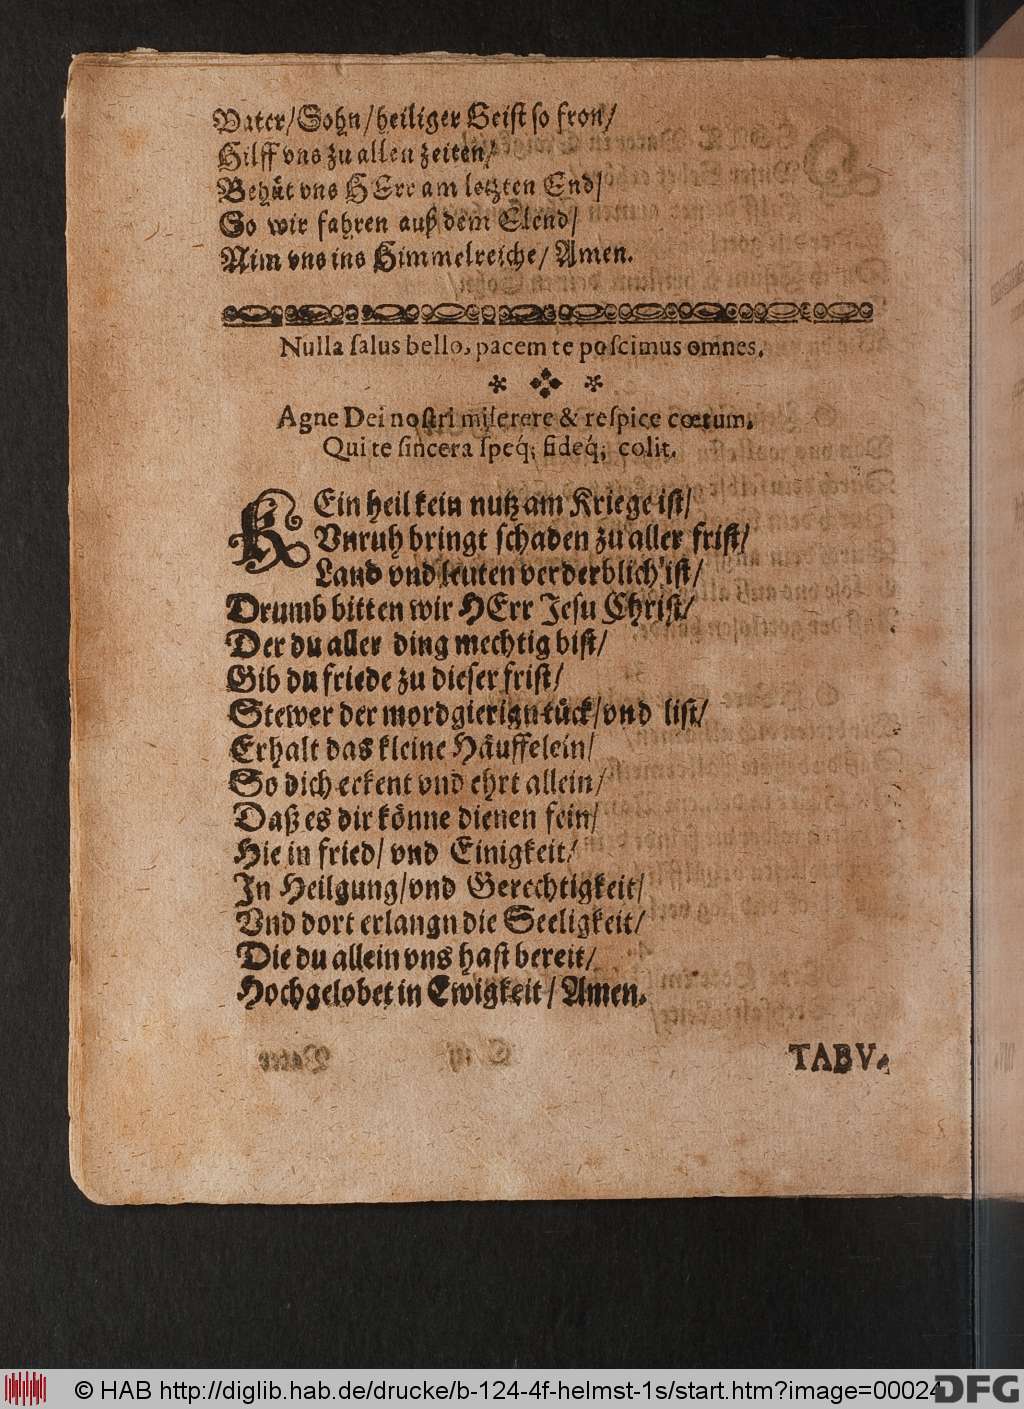 Vater/ Sohn/ heiliger Geist so fron/
Hilff vns zu allen zeiten/
Behüt vns HErr am letzten End/
So wir fahren auß dem Elend/
Nim vns ins Himmelreiche/ Amen.
Nulla ſalus bello, pacem te poſcimus omnes.
Agne Dei noſtri miſerere & reſpice cœtum.
Qui te ſincera ſpeq́; fideq́; colit.
KEin heil kein nutz am Kriege iſt/
Vnruh bringt ſchaden zu aller friſt/
Land vnd leuten verderblich iſt/
Drumb bitten wir HErr Jeſu Chriſt/
Der du aller ding mechtig biſt/
Gib du friede zu dieſer friſt/
Stewer der mordgierign tück/ vnd liſt/
Erhalt das kleine Häuffelein/
So dich erkent vnd ehrt allein/
Daß es dir könne dienen fein/
Hie in fried/ vnd Einigkeit/
In Heilgung/ vnd Gerechtigkeit/
Vnd dort erlangn die Seeligkeit/
Die du allein vns haſt bereit/
Hochgelobet in Ewigkeit/ Amen.
TABV.
© HAB http://diglib.hab.de/drucke/b-124-4f-helmst-1s/start.htm?image=00024
DFG